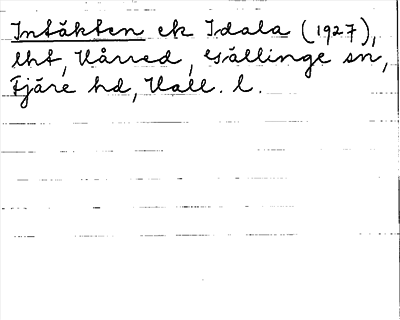 Intäkten ek Idala (1927),
lht, Vårred, Gällinge sn,
Fjäre hd, Hall. l.